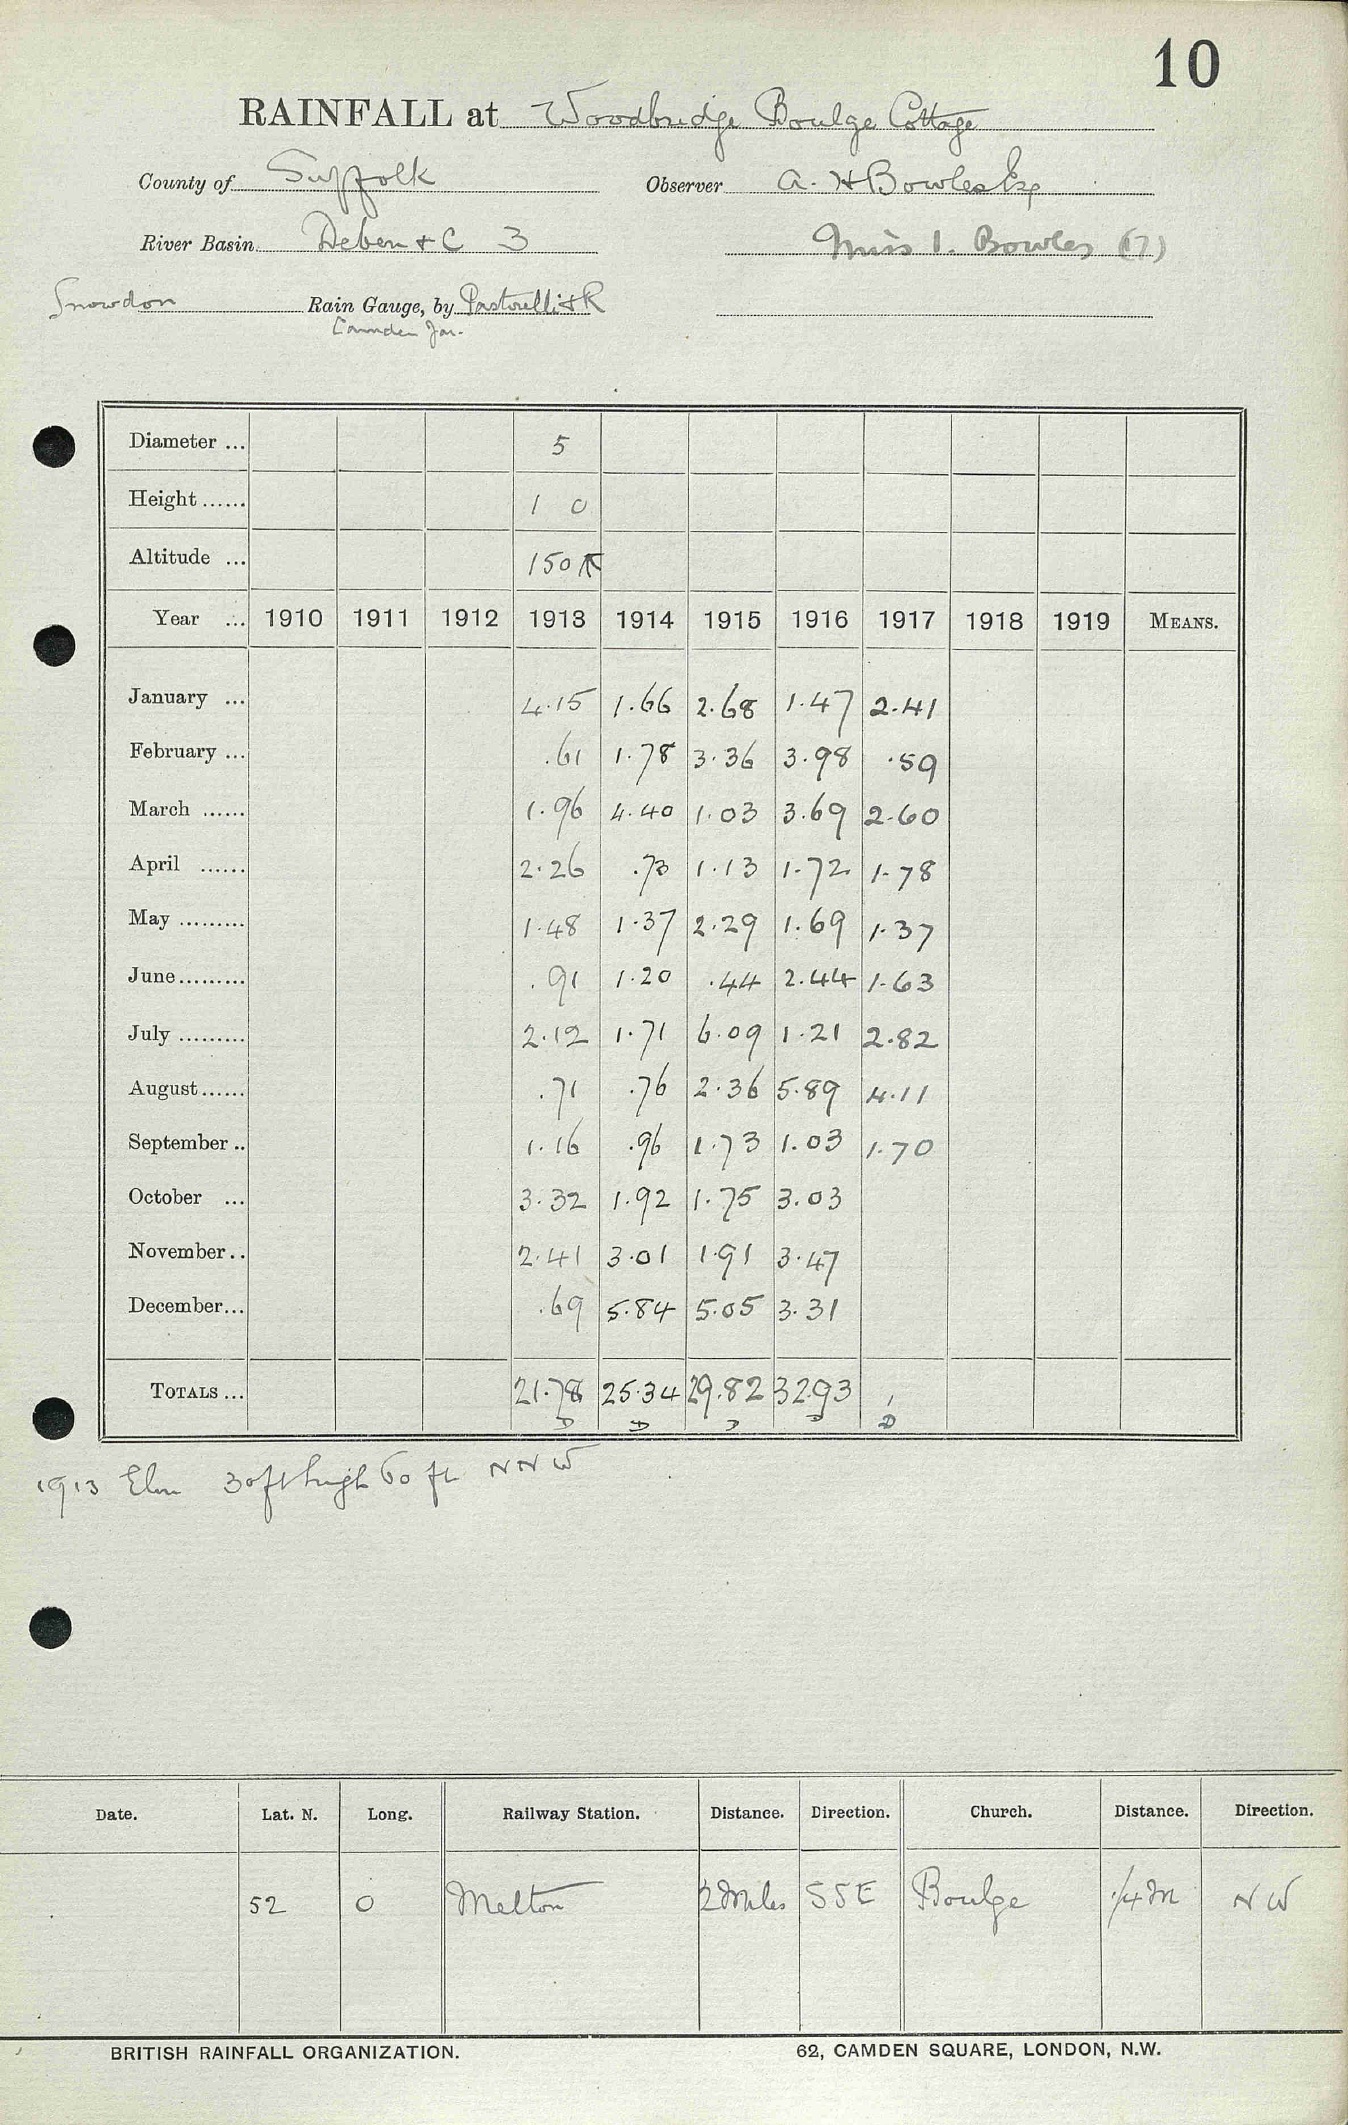 10
RAINFALL at Woodbridge Boulge Cottage
County of Suffolk Observer A. H Bowles Esq
River Basin Deben & C 3 Miss I. Bowles (17)
Snowdon Rain Gauge, by Pastorelli & R
Camden Jar.
Diameter ... 5
Height ...... 1 0
Altitude ... 150
Year ... 1910 1911 1912 1913 1914 1915 1916 1917 1918 1919 MEANS.
January ... 4.15 1.66 2.68 1.47 2.41
February ... .61 1.78 3.36 3.98 .59
March ...... 1.96 4.40 1.03 3.69 2.60
April ...... 2.26 .73 1.13 1.72 1.78
May ......... 1.48 1.37 2.29 1.69 1.37
June ......... .91 1.20 .44 2.44 1.63
July ......... 2.12 1.71 6.09 1.21 2.82
August ...... .71 .76 2.36 5.89 4.11
September .. 1.16 .96 1.73 1.03 1.70
October ... 3.32 1.92 1.75 3.03
November .. 2.41 3.01 1.91 3.47
December ... .69 5.84 5.05 3.31
TOTALS ... 21.78 25.34 29.82 32.93
D D D D D
1913 Elm 30ft high 60 ft NNW
Date. Lat. N. Long. Railway Station. Distance. Direction. Church. Distance. Direction.
52 0 Melton 2 Miles SSE Boulge 1/4 M NW
BRITISH RAINFALL ORGANIZATION. 62, CAMDEN SQUARE, LONDON, N.W.